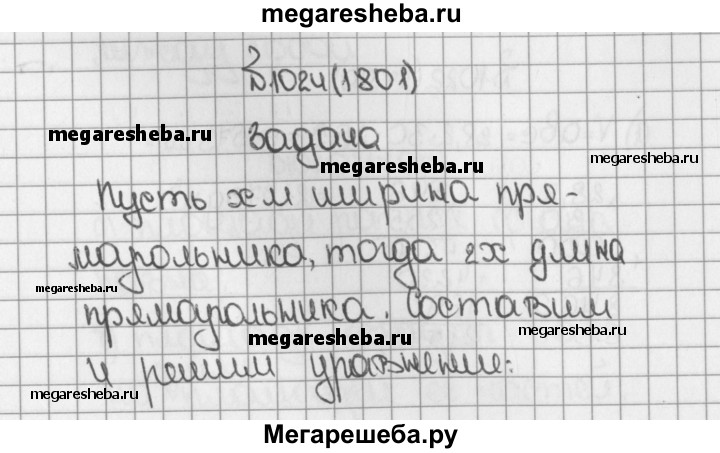 megaresheba.ru
№1024(1801)
megaresheba.ru задача megaresheba.ru
megaresheba.ru
Пусть x м ширина пря-
моугольника, тогда 2x длина
megaresheba.ru
прямоугольника. Составим
megaresheba.ru megaresheba.ru
и решим уравнение:
megaresheba.ru megaresheba.ru
Мегарешеба.ру